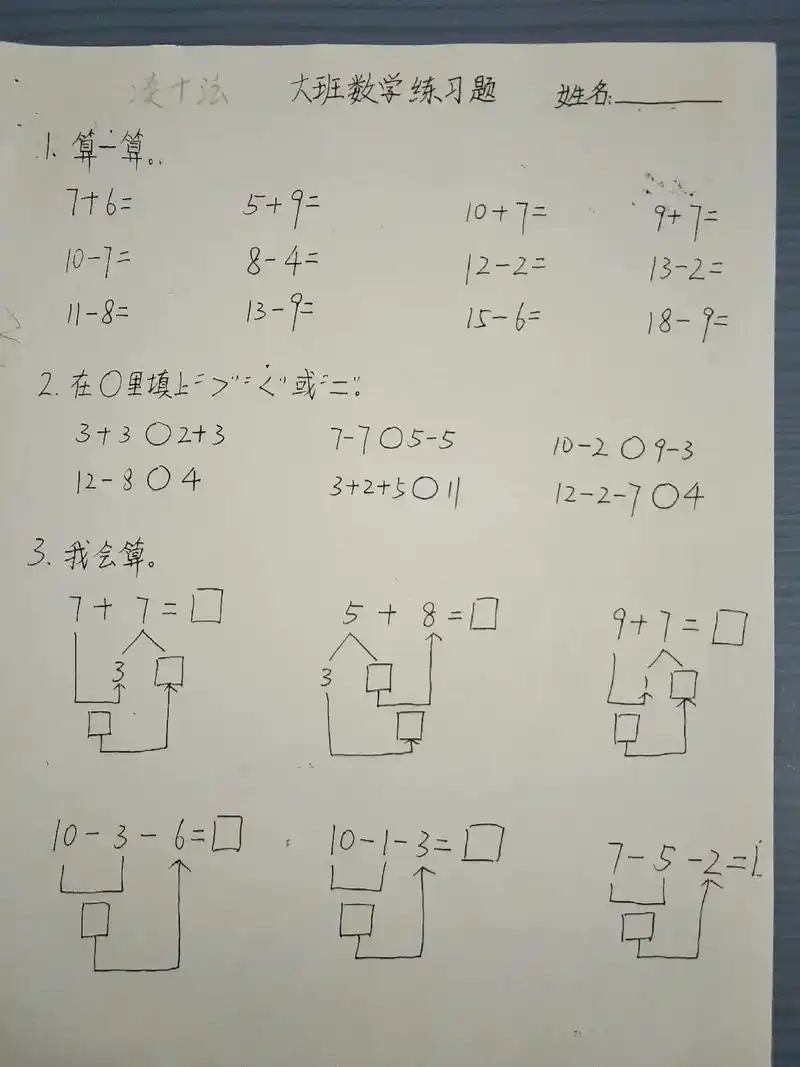 凑十法 大班数学练习题 姓名:________
1. 算一算。
7+6= 5+9= 10+7= 9+7=
10-7= 8-4= 12-2= 13-2=
11-8= 13-9= 15-6= 18-9=
2. 在○里填上">""<"或"="。
3+3○2+3 7-7○5-5 10-2○9-3
12-8○4 3+2+5○11 12-2-7○4
3. 我会算。
7+7=□ 5+8=□ 9+7=□
3 □ 3 □ 1 □
□ □ □
10-3-6=□ 10-1-3=□ 7-5-2=□
□ □ □